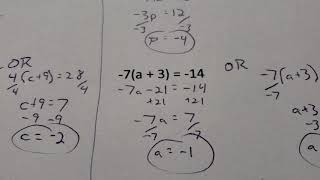 -3p = 12
-3 -3
p = -4
OR
4(c+9)=28
/4 /4
c+9=7
-9 -9
c = -2
-7(a + 3) = -14
-7a-21=-14
+21 +21
-7a = 7
-7 -7
a = -1
OR
-7(a+3)
-7
a+3
-3
a